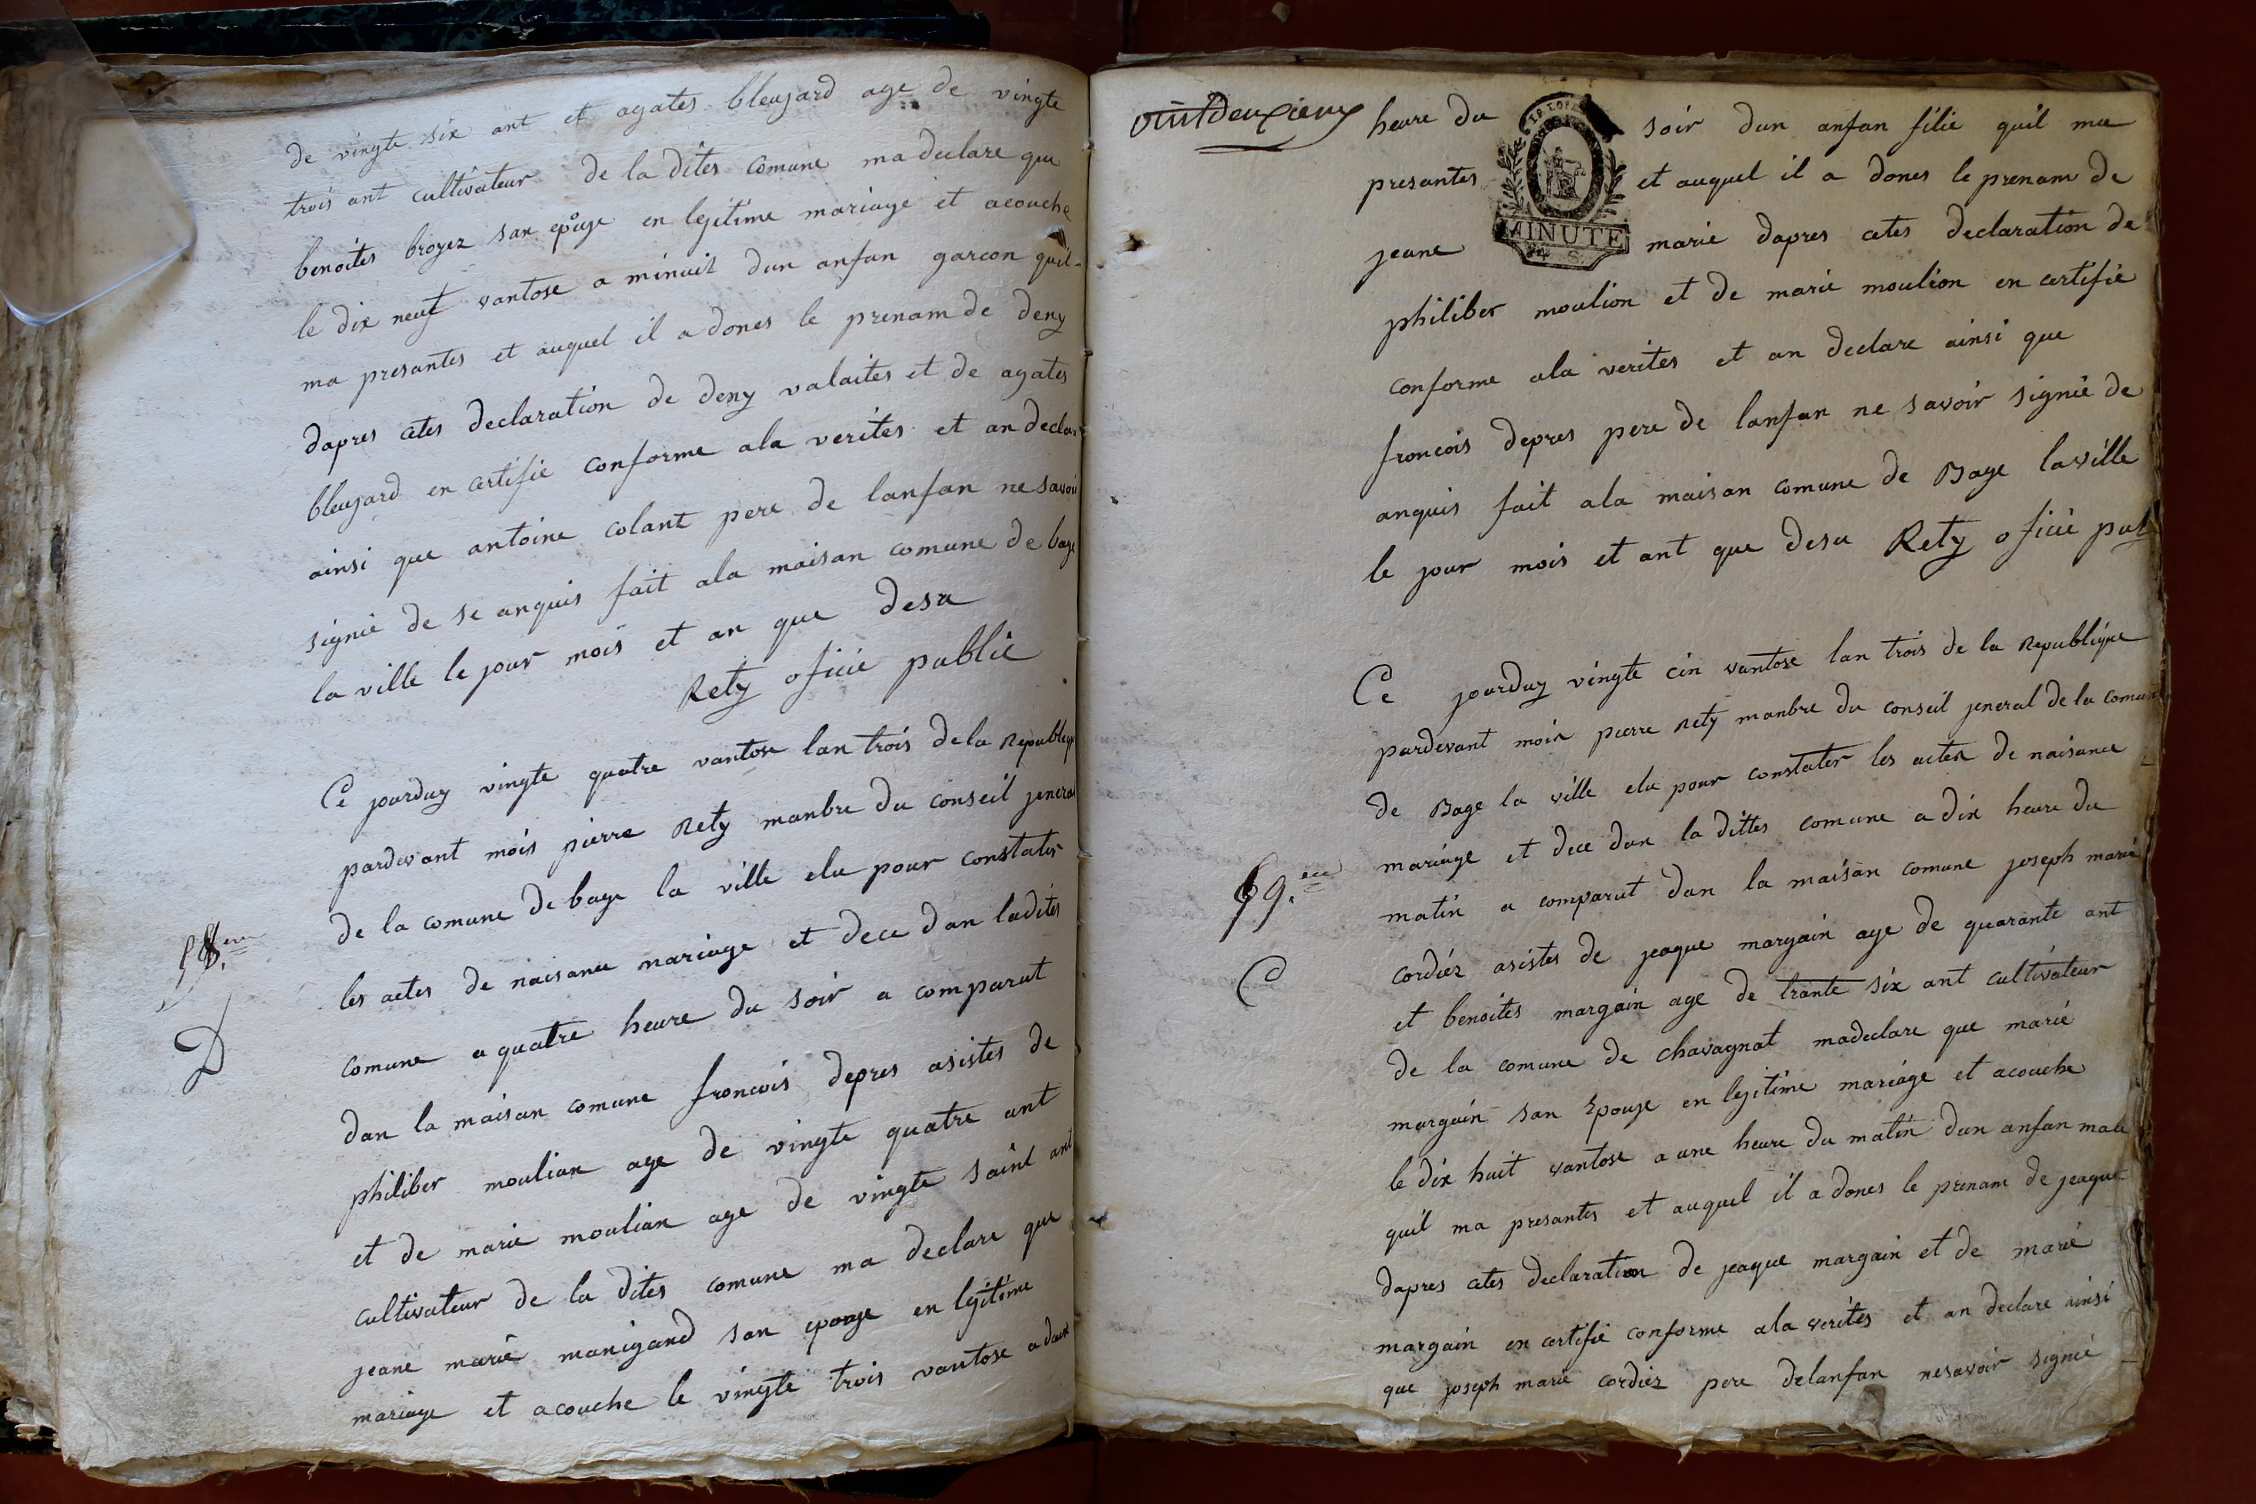 de vingte six ant et agates bleujard age de vingte
trois ant cultivateur de la dites comune ma declare que
benoites broyez san epouge en legitime mariage et acouche
le dix neuf vantose a minuit dun anfan garcon quil
ma presantes et auquel il a dones le prenam de deny
dapres cetes declaration de deny valaites et de agates
bleujard en certifie conforme ala verites et an declare
ainsi que antoine colant pere de lanfan ne savoir
signié de se anquis fait ala maisan comune de bage
la ville le jour mois et an que desu
Rety oficié public
Ce jourduy vingte quatre vantose lan trois de la Republique
pardevant mois pierre Rety manbre du conseil jeneral
de la comune de bage la ville elu pour constater
58.eme
les actes de naisance mariage et dece dan ladites
D
comune a quatre heure du soir a comparut
dan la maisan comune froncois depres asistes de
philiber moulian age de vingte quatre ant
et de marie moulian age de vingte saint ant
cultivateur de la dites comune ma declare que
jeane marie manigand san epouge en legitime
mariage et acouche le vingte trois vantose a
vint deuxieme
heure du soir dun anfan filie quil ma
presantes et auquel il a dones le prenam de
MINUTE
jeane marie dapres cetes declaration de
philiber moulion et de marie moulion en certifie
conforme ala verites et an declare ainsi que
froncois depres pere de lanfan ne savoir signié de
anquis fait ala maisan comune de Bage laville
le jour mois et ant que desu Rety oficié pub
Ce jourduy vingte cin vantose lan trois de la Republique
pardevant mois pierre Rety manbre du conseil jeneral de la comune
de Bage la ville elu pour constater les actes de naisance
mariage et dece dan la dittes comune a dix heure du
59.eme
matin a comparut dan la maisan comune joseph marie
C
cordiez asistes de jeaque margain age de quarante ant
et benoites margain age de trante six ant cultivateur
de la comune de chavagnat madeclare que marie
margain san Epouge en legitime mariage et acouche
le dix huit vantose a une heure du matin dun anfan male
quil ma presantes et auquel il a dones le prenam de jeaque
dapres cetes declaration de jeaque margain et de marie
margain en certifie conforme ala verites et an declare ainsi
que joseph marie cordiez pere delanfan nesavoir signié